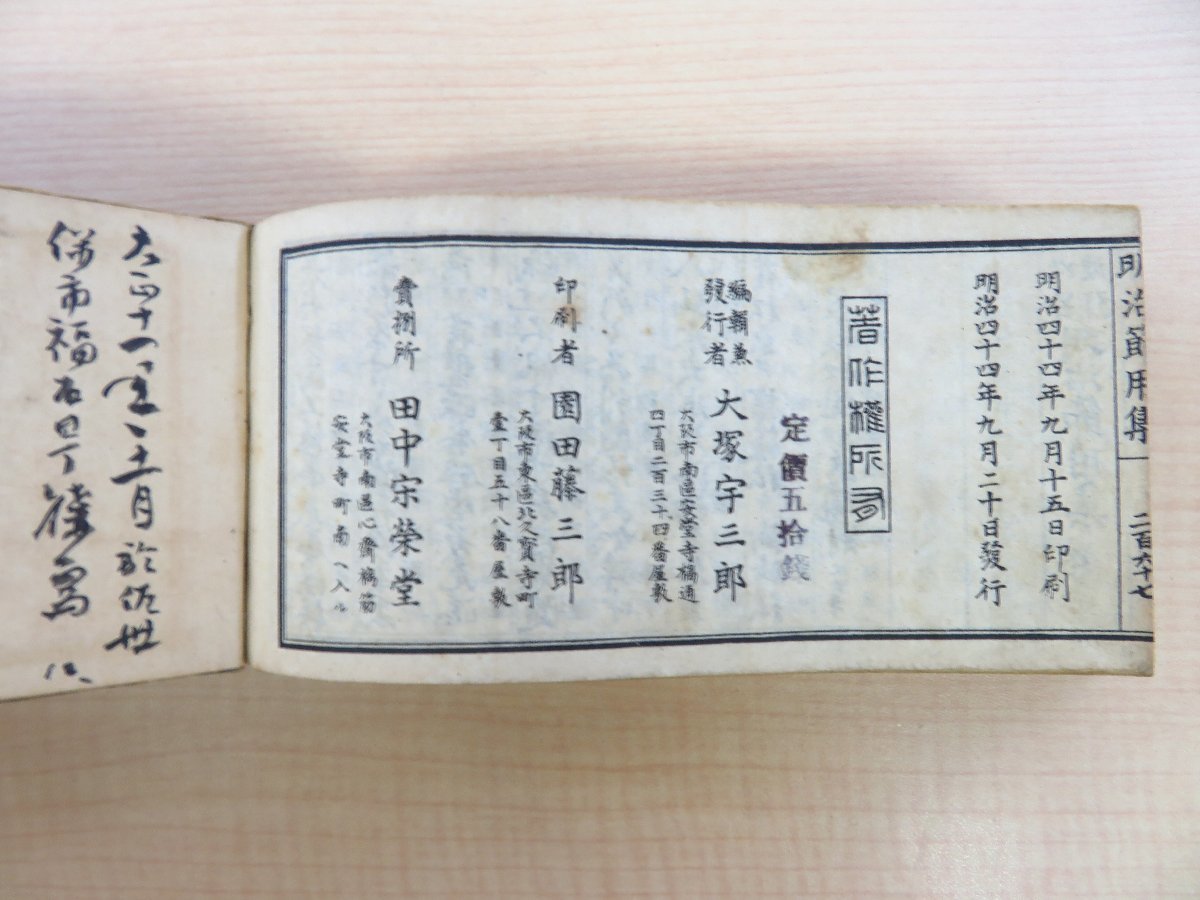 明治節用集
二百六十七
明治四十四年九月十五日印刷
明治四十四年九月二十日發行
著作權所有
定價五拾錢
編輯兼
發行者 大塚宇三郎
大阪市南區安堂寺橋通
四丁目二百三十四番屋敷
印刷者 園田藤三郎
大阪市東區北久寶寺町
壹丁目五十八番屋敷
賣捌所 田中宗榮堂
大阪市南區心齋橋筋
安堂寺町南ヘ入ル
大正十一年 月 於佐世
保市福石町